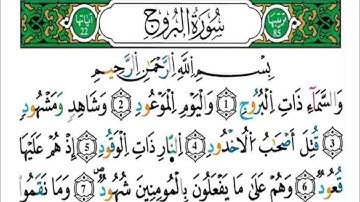 ترتيبها 85 سُورَةُ الْبُرُوجِ آياتها 22
بِسْمِ اللَّهِ الرَّحْمَٰنِ الرَّحِيمِ
وَالسَّمَاءِ ذَاتِ الْبُرُوجِ 1 وَالْيَوْمِ الْمَوْعُودِ 2 وَشَاهِدٍ وَمَشْهُودٍ
3 قُتِلَ أَصْحَابُ الْأُخْدُودِ 4 النَّارِ ذَاتِ الْوَقُودِ 5 إِذْ هُمْ عَلَيْهَا
قُعُودٌ 6 وَهُمْ عَلَىٰ مَا يَفْعَلُونَ بِالْمُؤْمِنِينَ شُهُودٌ 7 وَمَا نَقَمُوا